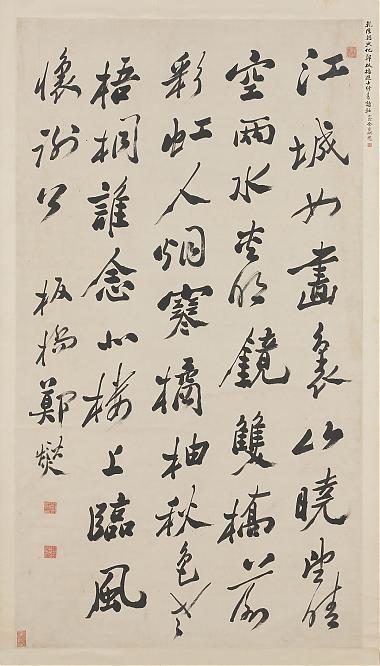 江城如畫裏山曉望晴
空兩水夾明鏡雙橋落
彩虹人烟寒橘柚秋色老
梧桐誰念北樓上臨風
懷謝公
板橋鄭燮